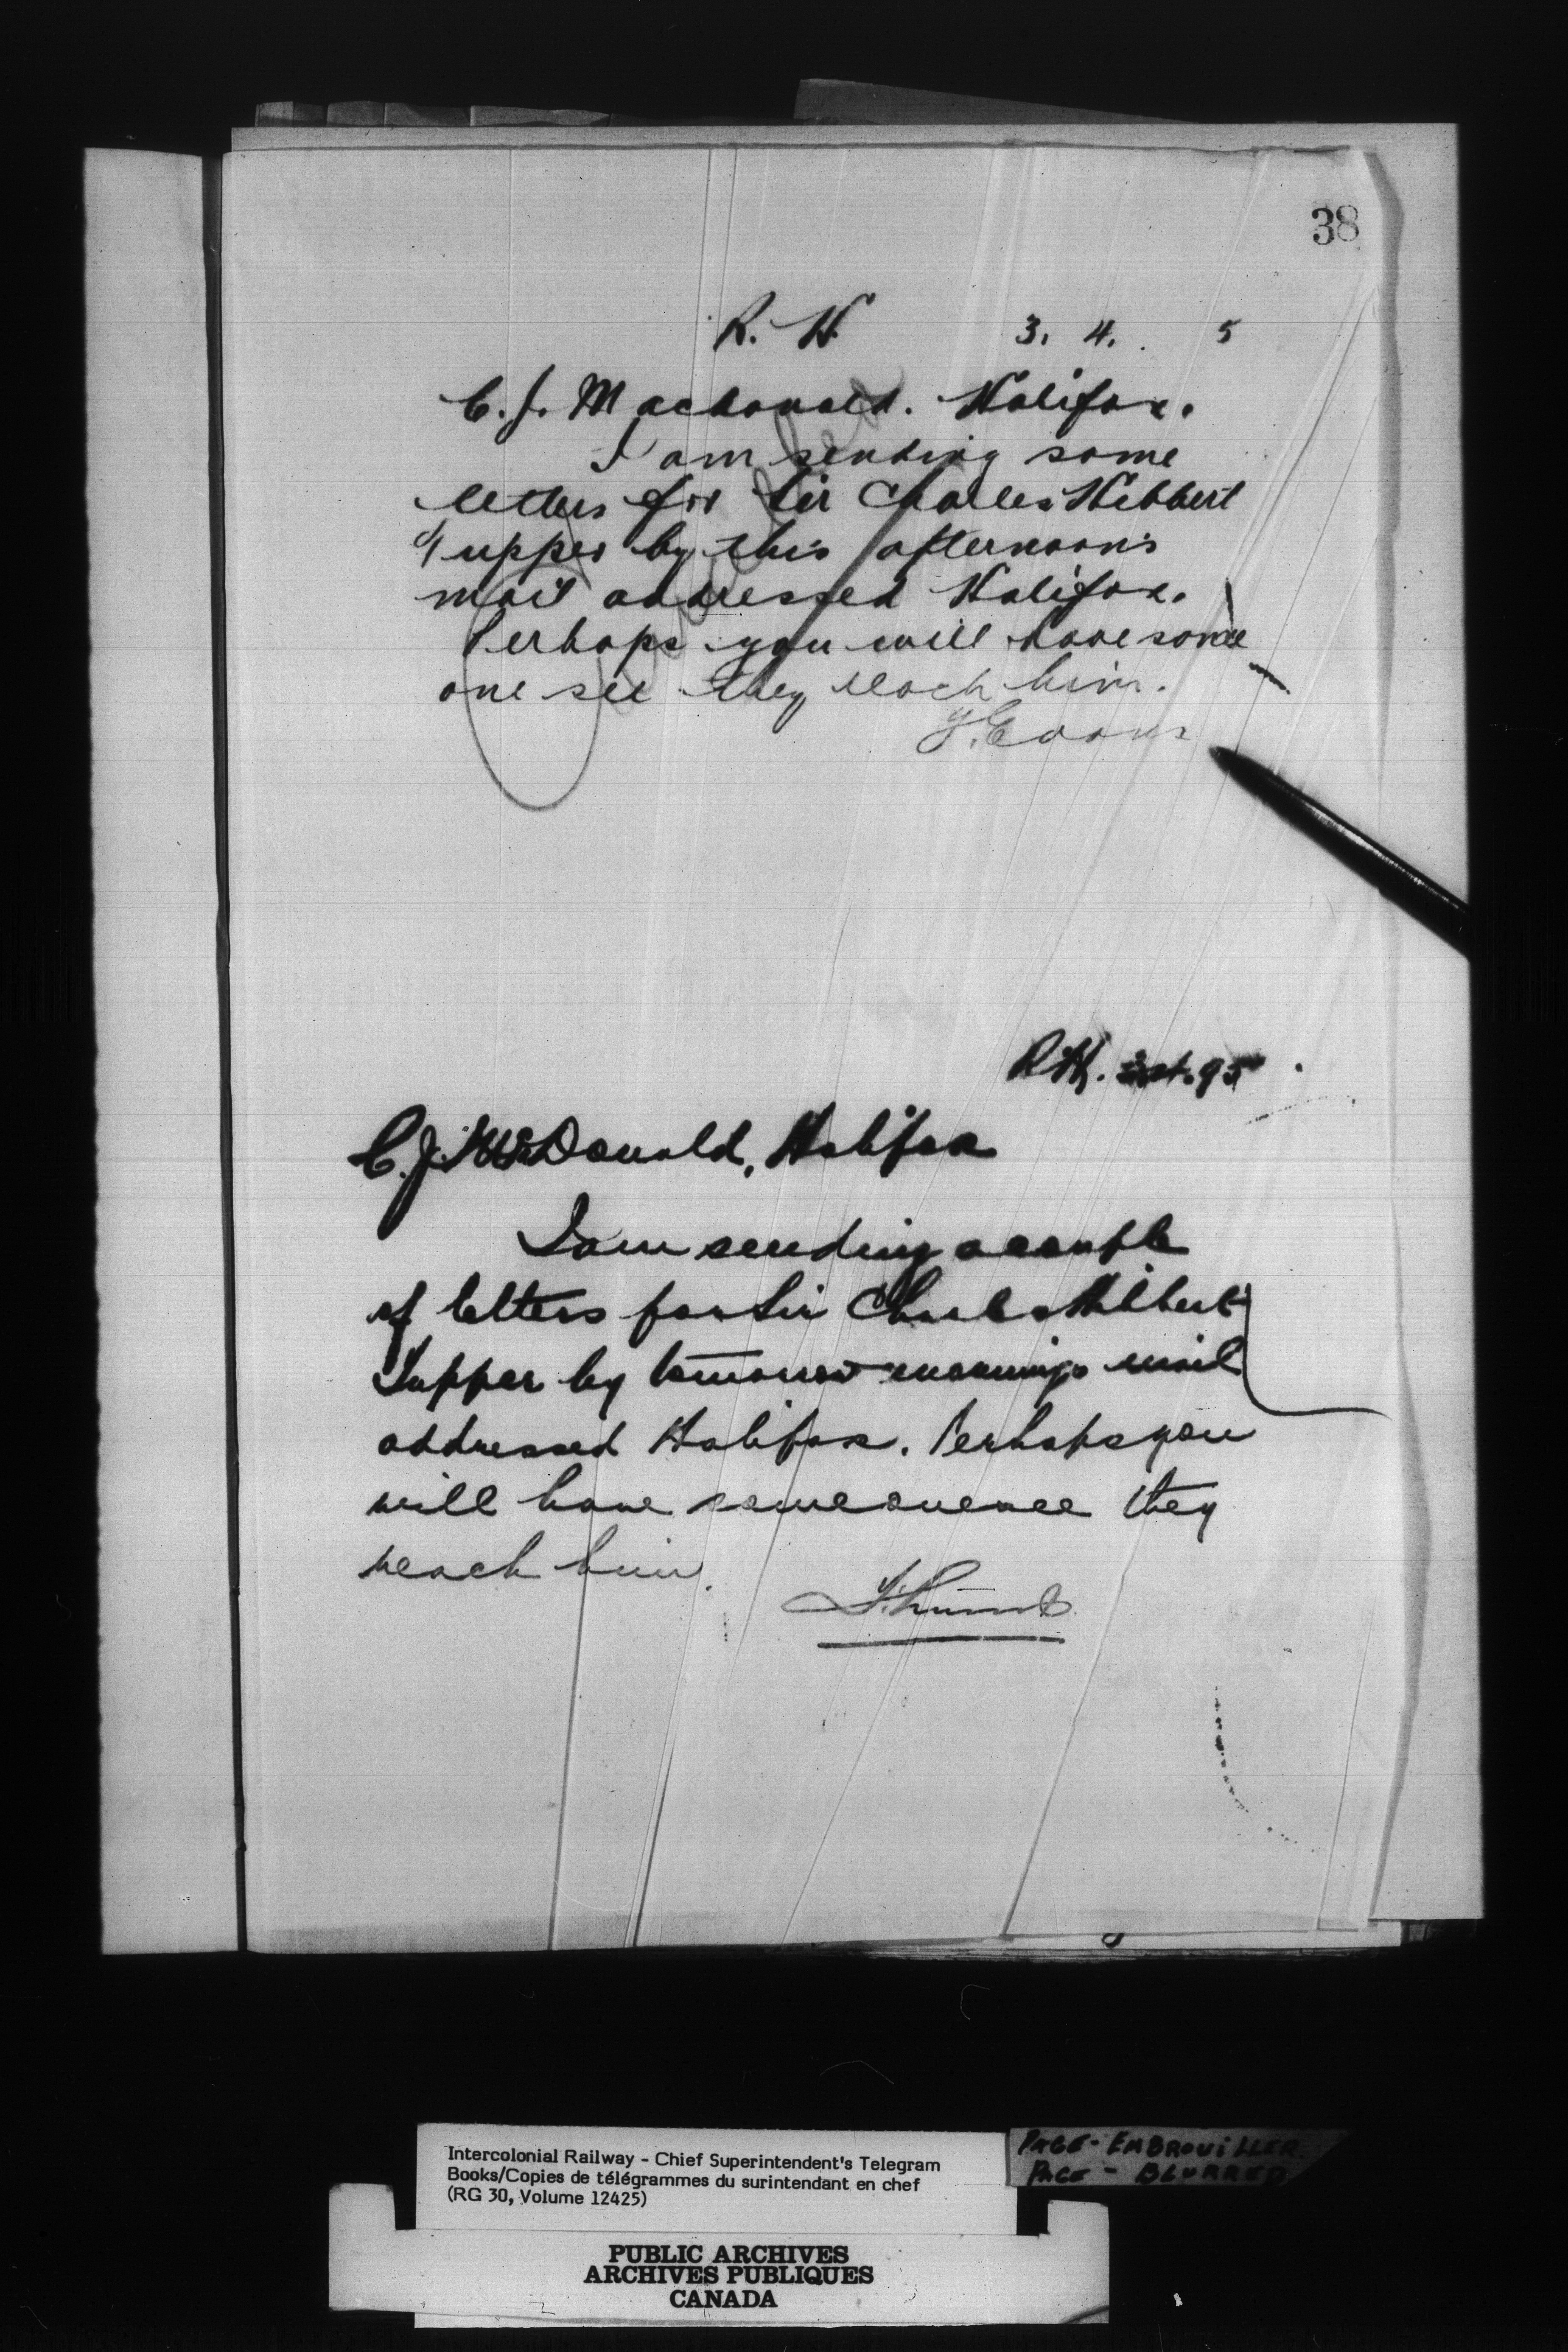 38
R. H. 3. 4. 5
C. J. Macdonald. Halifax.
I am sending some
letters for Sir Charles Hibbert
Tupper by this afternoon's
mail addressed Halifax.
Perhaps you will have some
one see they reach him.
R.H. 95
C. J. McDonald, Halifax
I am sending a couple
of letters for Sir Charles Hibbert
Tupper by tomorrow mornings mail
addressed Halifax. Perhaps you
will have someone see they
reach him.
Intercolonial Railway - Chief Superintendent's Telegram
Books/Copies de télégrammes du surintendant en chef
(RG 30, Volume 12425)
PAGE - EMBROUILLER.
PAGE - BLURRED
PUBLIC ARCHIVES
ARCHIVES PUBLIQUES
CANADA